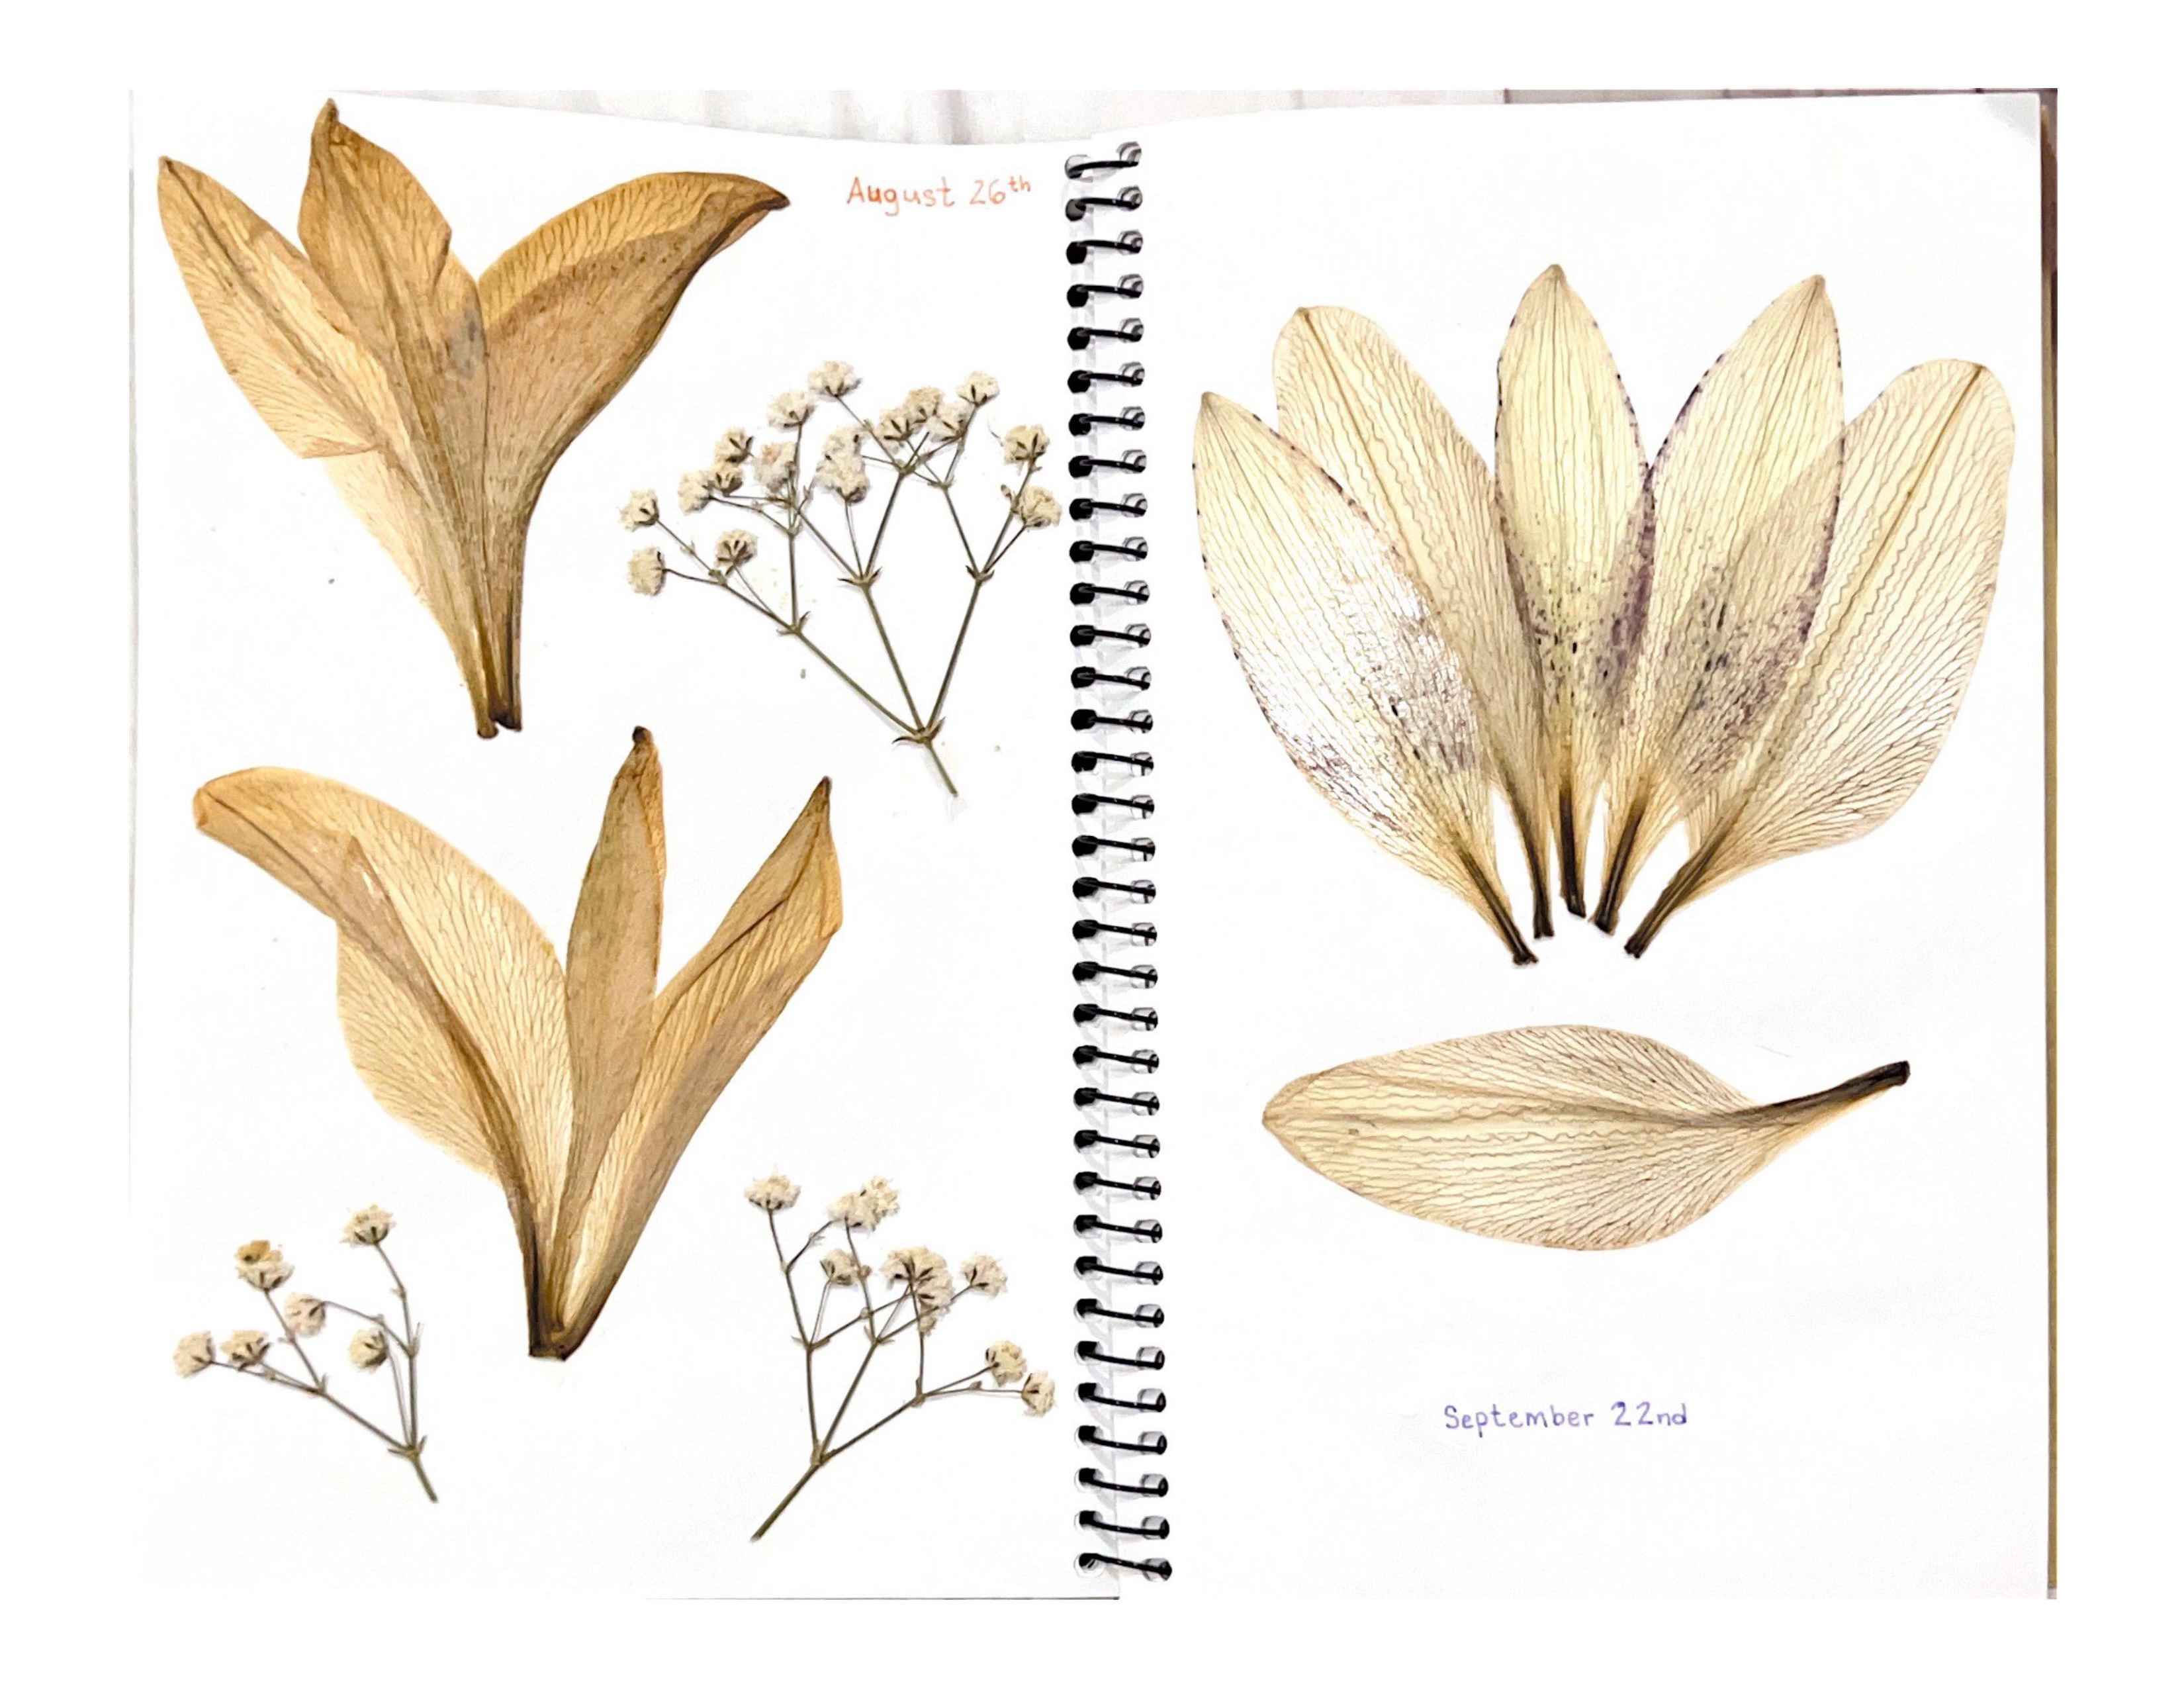 August 26th
September 22nd